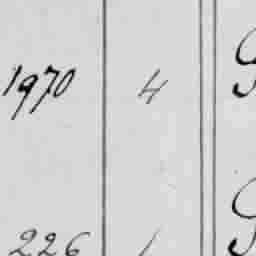 1970 4
226 1